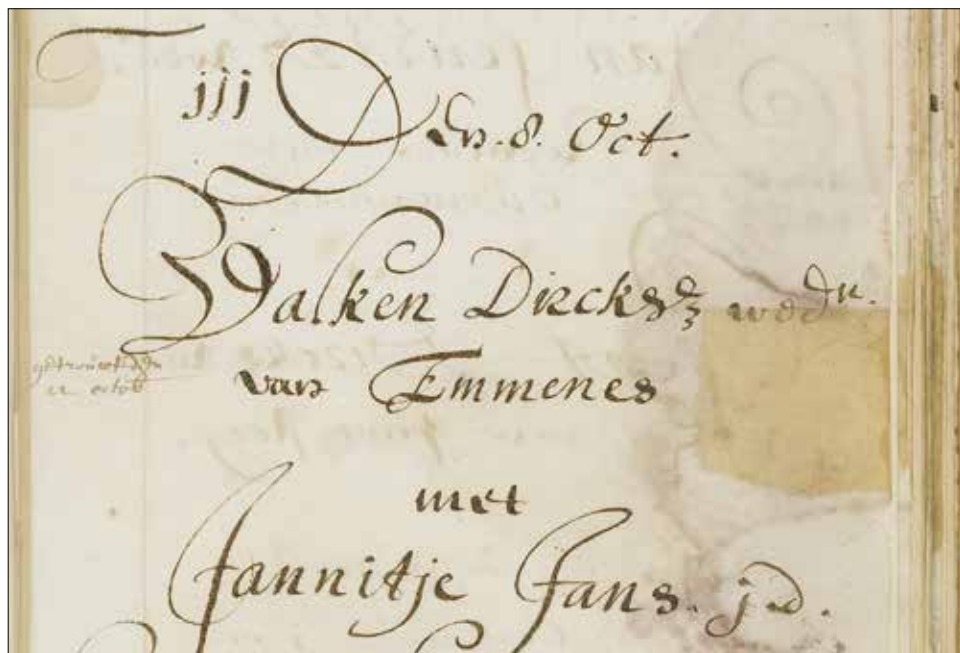 iij Den. 8. Oct.
Valken Dircksz wedr.
getrouwt den
22 octob
van Emmenes
met
Jannitje Jans. j.d.